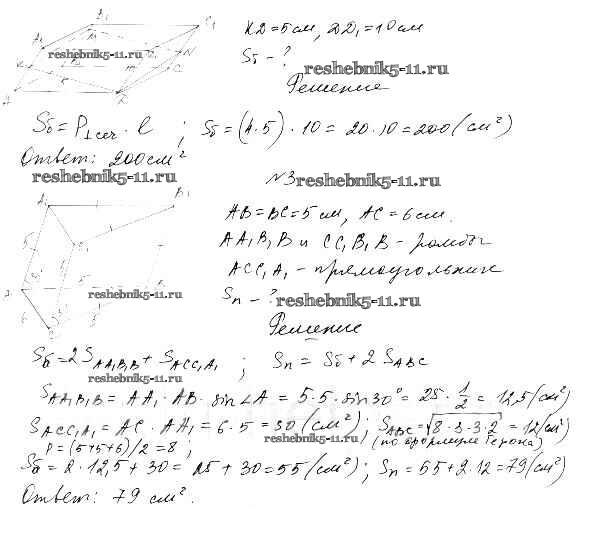 KD = 5 см, DD₁ = 10 см
Sб - ?
reshebnik5-11.ru
reshebnik5-11.ru
Решение
Sб = P⊥сеч · l ; Sб = (4·5)·10 = 20·10 = 200 (см²)
Ответ: 200 см²
reshebnik5-11.ru
№3 reshebnik5-11.ru
AB = BC = 5 см, AC = 6 см.
AA₁B₁B и CC₁B₁B - ромбы
ACC₁A₁ - прямоугольник
reshebnik5-11.ru
Sп - ? reshebnik5-11.ru
Решение
Sб = 2S AA₁B₁B + S ACC₁A₁ ; Sп = Sб + 2 S ABC
reshebnik5-11.ru
S AA₁B₁B = AA₁ · AB · sin∠A = 5·5·sin30° = 25 · 1/2 = 12,5 (см²)
S ACC₁A₁ = AC · AA₁ = 6·5 = 30 (см²) ; S ABC = √8·3·3·2 = 12 (см²)
reshebnik5-11.ru
P = (5+5+6)/2 = 8 ; (по формуле Герона)
Sб = 2·12,5 + 30 = 25 + 30 = 55 (см²) ; Sп = 55 + 2·12 = 79 (см²)
Ответ: 79 см².